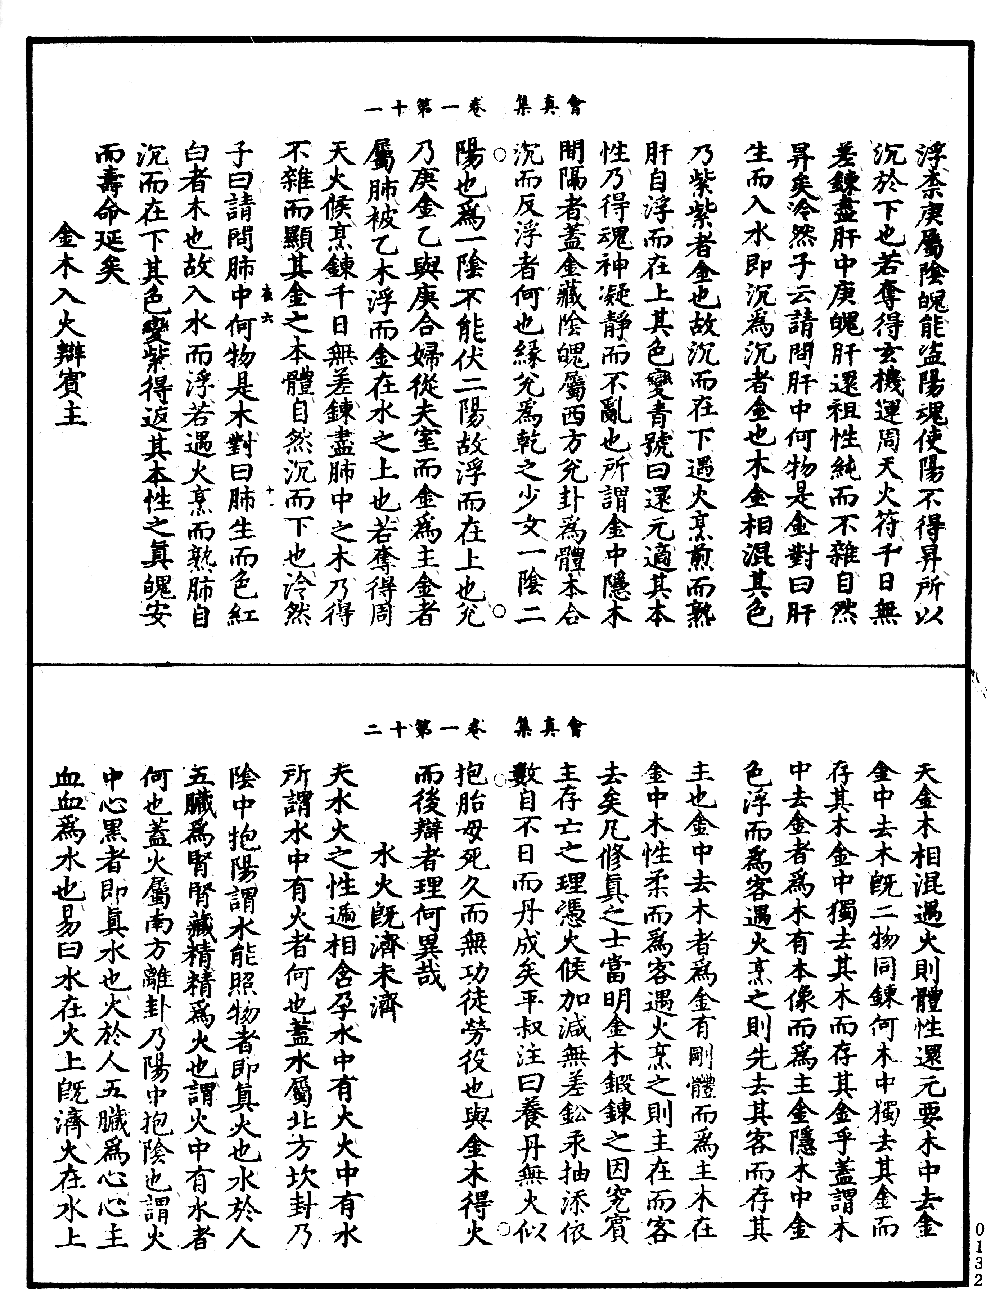 會真集　卷一第十一
浮柰庚屬陰魄能盗陽魂使陽不得昇所以
沉於下也若奪得玄機運周天火符千日無
差鍊盡肝中庚魄肝還祖性純而不雜自然
昇矣泠然子云請問肝中何物是金對曰肝
生而入水即沉為沉者金也木金相混其色
乃紫紫者金也故沉而在下遇火烹煎而熟
肝自浮而在上其色變青號曰還元適其本
性乃得魂神凝靜而不亂也所謂金中隱木
間隔者蓋金藏陰魄屬西方兊卦為體本合
沉而反浮者何也緣兊為乾之少女一陰二
陽也爲一陰不能伏二陽故浮而在上也兊
乃庚金乙與庚合婦從夫室而金爲主金者
屬肺被乙木浮而金在水之上也若奪得周
天火候烹鍊千日無差鍊盡肺中之木乃得
不雜而顯其金之本體自然沉而下也泠然
子曰請問肺中何物是木對曰肺生而色紅
白者木也故入水而浮若遇火烹而熟肺自
沉而在下其色變紫得返其本性之真魄安
而壽命延矣
金木入火辯賓主
會真集　卷一第十二
夫金木相混遇火則體性還元要木中去金
金中去木旣二物同鍊何木中獨去其金而
存其木金中獨去其木而存其金乎蓋謂木
中去金者爲木有本像而爲主金隱木中金
色浮而爲客遇火烹之則先去其客而存其
主也金中去木者爲金有剛體而爲主木在
金中木性柔而爲客遇火烹之則主在而客
去矣凡修真之士當明金木鍛鍊之因究賓
主存亡之理憑火候加減無差鈆汞抽添依
數自不日而丹成矣平叔注曰養丹無火似
抱胎母死久而無功徒勞役也與金木得火
而後辯者理何異哉
水火旣濟未濟
夫水火之性遞相含孕水中有火火中有水
所謂水中有火者何也蓋水屬北方坎卦乃
陰中抱陽謂水能照物者即真火也水於人
五臟爲腎腎藏精精爲火也謂火中有水者
何也蓋火屬南方離卦乃陽中抱陰也謂火
中心黑者即真水也火於人五臟爲心心主
血血爲水也易曰水在火上旣濟火在水上
0132